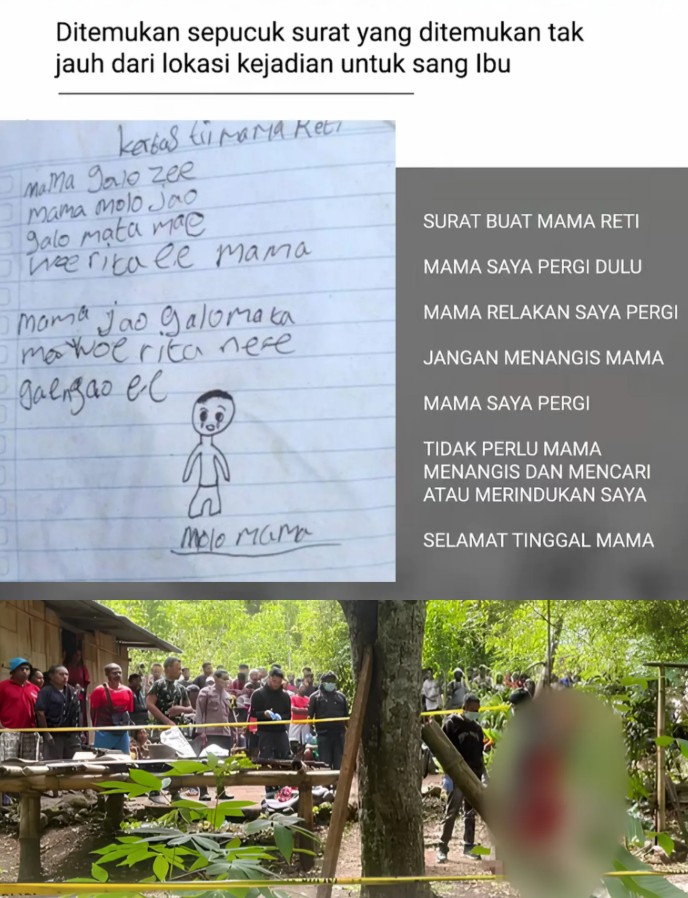 Ditemukan sepucuk surat yang ditemukan tak
jauh dari lokasi kejadian untuk sang Ibu
kertas tii mama Reti
mama galo zee
mama molo jao
galo mata mae
woe rita ee mama
mama jao galo mata
mae woe rita nee
gae ngao ee
molo mama
SURAT BUAT MAMA RETI
MAMA SAYA PERGI DULU
MAMA RELAKAN SAYA PERGI
JANGAN MENANGIS MAMA
MAMA SAYA PERGI
TIDAK PERLU MAMA
MENANGIS DAN MENCARI
ATAU MERINDUKAN SAYA
SELAMAT TINGGAL MAMA